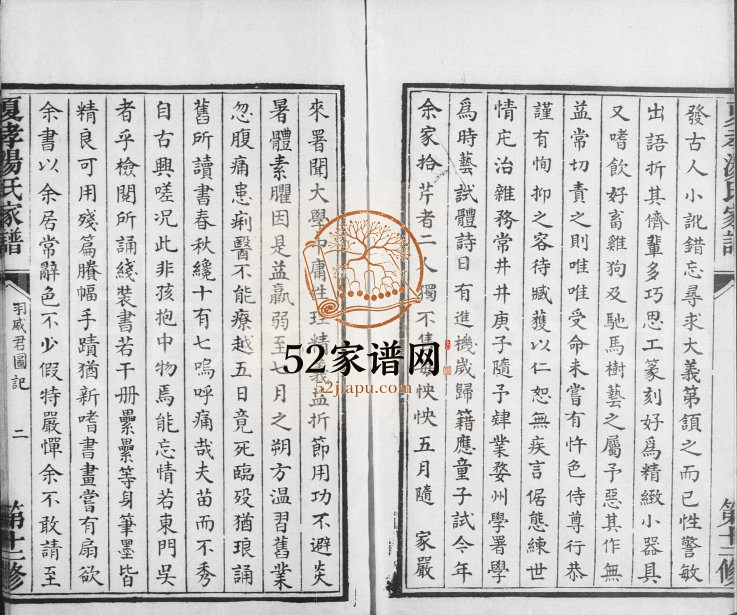 發古人小訛錯忘尋求大義第頷之而已性警敏
出語折其儕輩多巧思工篆刻好爲精緻小器具
又嗜飲好畜雞狗及馳馬樹藝之屬予惡其作無
益常切責之則唯唯受命未嘗有忤色侍尊行恭
謹有恂抑之容待臧獲以仁恕無疾言倨態練世
情庀治雜務常井井庚子隨予肄業婺州學署學
爲時藝試體詩日有進機歲歸籍應童子試今年
余家拾芹者二人獨不售 怏怏五月隨 家嚴
來署聞大學中庸性理精義益折節用功不避炎
暑體素臞因是益羸弱至七月之朔方温習舊業
忽腹痛患痢醫不能療越五日竟死臨殁猶琅誦
舊所讀書春秋纔十有七嗚呼痛哉夫苗而不秀
自古興嗟况此非孩抱中物焉能忘情若東門吳
者乎檢閱所誦綫裝書若干册纍纍等身筆墨皆
精良可用殘篇賸幅手蹟猶新嗜書畫嘗有扇欲
余書以余居常辭色不少假特嚴憚余不敢請至
夏孝湯氏家譜
羽威君圖記
二
第十二修
52家谱网
52jiapu.com